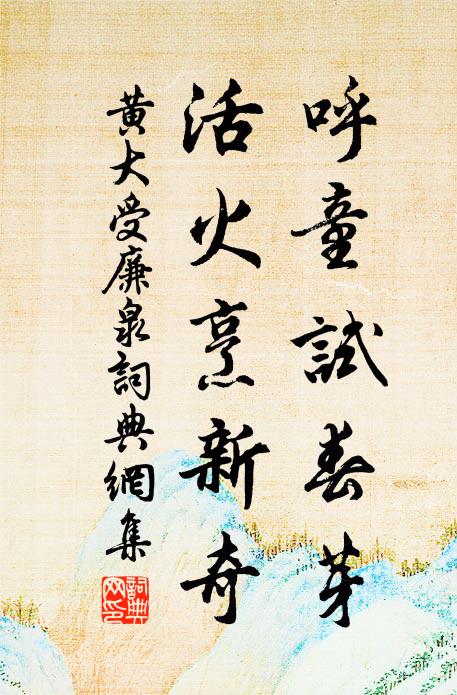 呼童試春芽
活火烹新奇
黃大受廉泉詞典網集
詞典網印